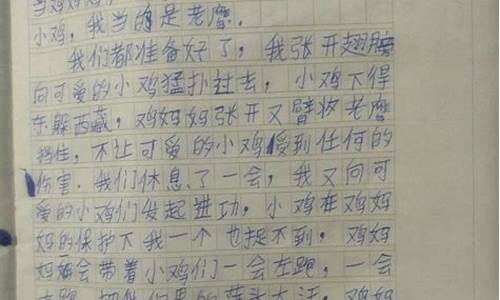 当鸡妈妈，
小鸡，我当的是老鹰。
我们都准备好了，我张开翅膀
向可爱的小鸡猛扑过去，小鸡下得
东躲西藏，鸡妈妈张开又臂将老鹰
挡住，不让可爱的小鸡受到任何的
伤害．我们休息了一会，我又向可
爱的小鸡们发起进功，小鸡在鸡妈
妈的保护下我一个也捉不到，鸡妈
妈会带着小鸡们一会左跑，一会
右跑，把他们累的